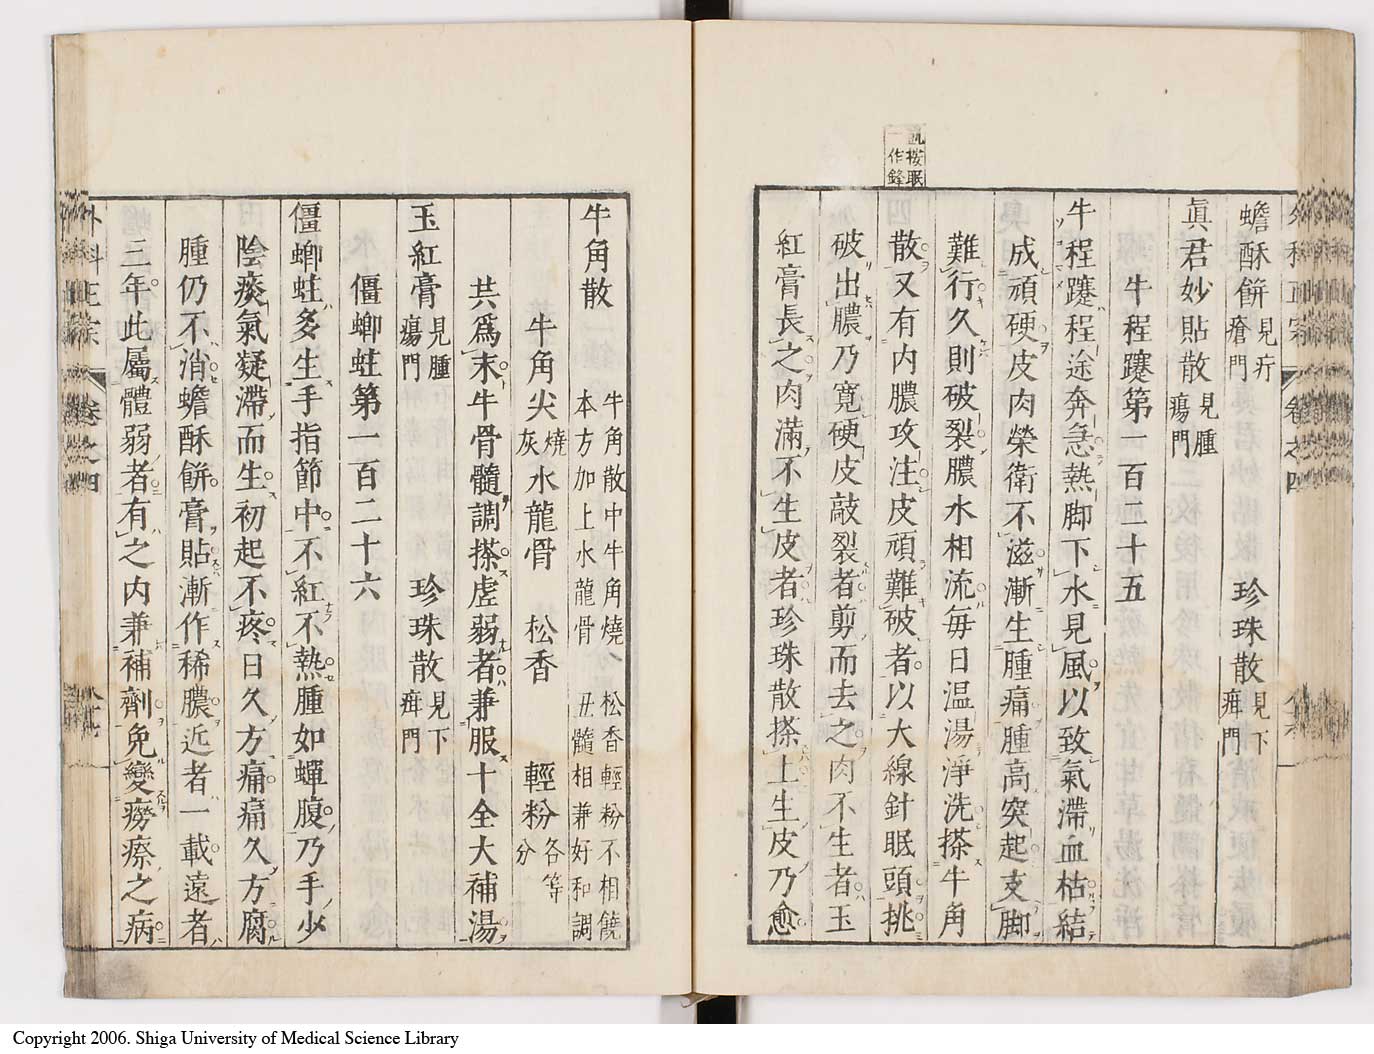 眠一作鋒
蟾酥餅見疔瘡門 珍珠散見下疳門
眞君妙貼散見腫瘍門
牛程蹇第一百二十五
牛程蹇程途奔急熱脚下水見風以致氣滯血枯結
成頑硬皮肉榮衛不滋漸生腫痛腫高突起支脚
難行久則破裂膿水相流毎日温湯淨洗搽牛角
散又有内膿攻注皮頑難破者以大線針眠頭挑
破出膿乃寛硬皮敲裂者剪而去之肉不生者玉
紅膏長之肉滿不生皮者珍珠散搽上生皮乃愈
牛角散 牛角散中牛角燒 松香輕粉不相饒 本方加上水龍骨 丑髓相兼好和調
牛角尖燒灰 水龍骨 松香 輕粉各等分
共爲末牛骨髓調搽虚弱者兼服十全大補湯
玉紅膏見腫瘍門 珍珠散見下疳門
僵螂蛀第一百二十六
僵螂蛀多生手指節中不紅不熱腫如蟬腹乃手少
陰痰氣疑滯而生初起不疼日久方痛痛久方腐
腫仍不消蟾酥餅膏貼漸作稀膿近者一載遠者
三年此屬體弱者有之内兼補劑免變癆瘵之病
外科正宗 卷之四
Copyright 2006. Shiga University of Medical Science Library